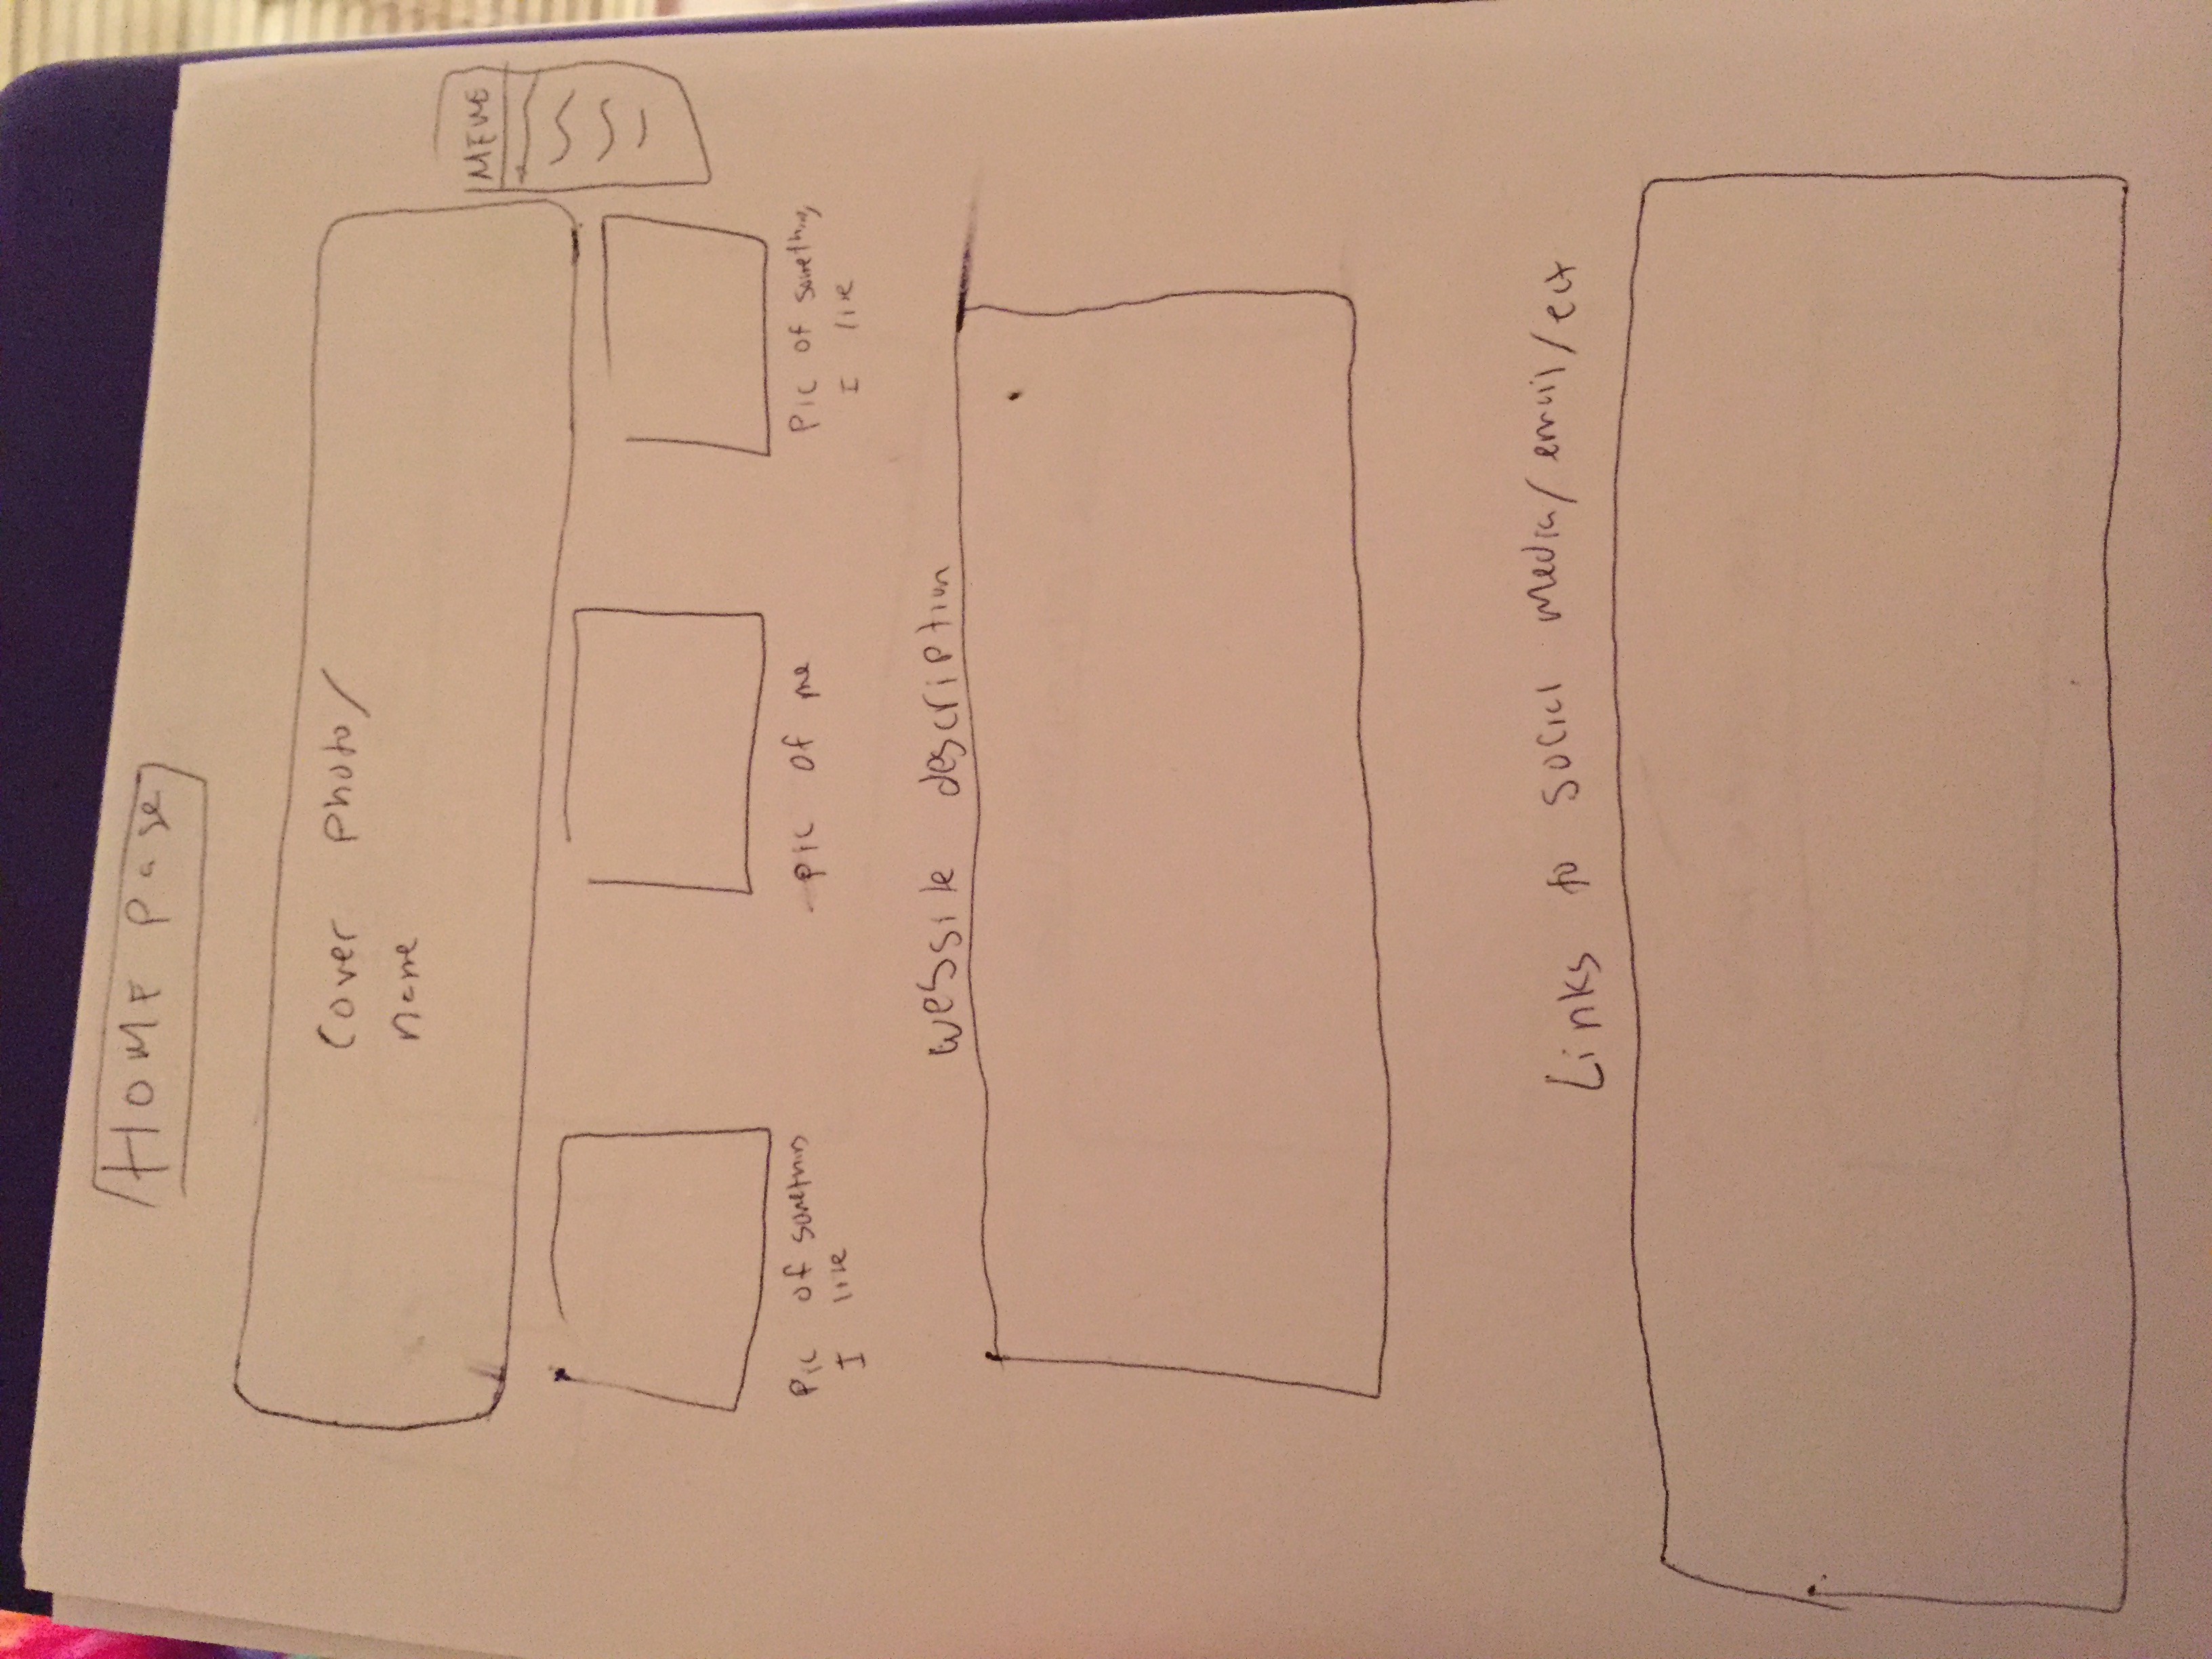 HOME Page
Cover Photo/
name
MENU
Pic of something
I like
pic of me
Pic of something
I like
website description
Links to social media/email/ect